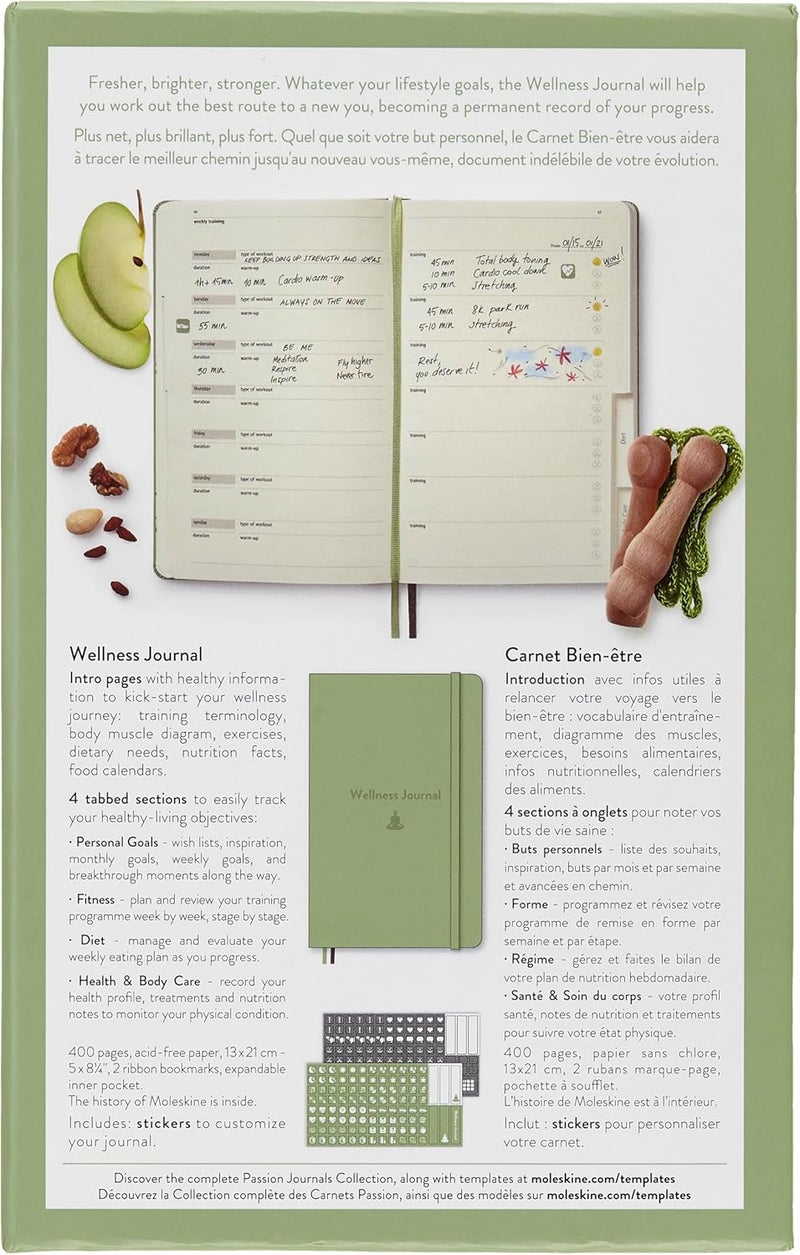 Fresher, brighter, stronger. Whatever your lifestyle goals, the Wellness Journal will help
you work out the best route to a new you, becoming a permanent record of your progress.
Plus net, plus brillant, plus fort. Quel que soit votre but personnel, le Carnet Bien-être vous aidera
à tracer le meilleur chemin jusqu'au nouveau vous-même, document indélébile de votre évolution.
weekly training
monday type of workout KEEP BUILDING UP STRENGTH AND IDEAS
duration warm-up
1h + 45min 10 min Cardio warm-up
tuesday type of workout ALWAYS ON THE MOVE
duration warm-up
55 min
wednesday type of workout BE ME
duration warm-up Meditation Fly higher
30 min Respire Never tire
Inspire
thursday type of workout
duration warm-up
friday type of workout
duration warm-up
saturday type of workout
duration warm-up
sunday type of workout
duration warm-up
From 01/15 to 01/21
training 45 min Total body toning WOW!
10 min Cardio cool down
5-10 min Stretching
training
45 min 8k park run
5-10 min stretching
training
Rest,
you deserve it!
training
training
training
training
Diet
Wellness Journal
Intro pages with healthy informa-
tion to kick-start your wellness
journey: training terminology,
body muscle diagram, exercises,
dietary needs, nutrition facts,
food calendars.
4 tabbed sections to easily track
your healthy-living objectives:
· Personal Goals - wish lists, inspiration,
monthly goals, weekly goals, and
breakthrough moments along the way.
· Fitness - plan and review your training
programme week by week, stage by stage.
· Diet - manage and evaluate your
weekly eating plan as you progress.
· Health & Body Care - record your
health profile, treatments and nutrition
notes to monitor your physical condition.
400 pages, acid-free paper, 13x21 cm -
5x8¼", 2 ribbon bookmarks, expandable
inner pocket.
The history of Moleskine is inside.
Includes: stickers to customize
your journal.
Wellness Journal
Wellness Journal
Carnet Bien-être
Introduction avec infos utiles à
relancer votre voyage vers le
bien-être : vocabulaire d'entraîne-
ment, diagramme des muscles,
exercices, besoins alimentaires,
infos nutritionnelles, calendriers
des aliments.
4 sections à onglets pour noter vos
buts de vie saine :
· Buts personnels - liste des souhaits,
inspiration, buts par mois et par semaine
et avancées en chemin.
· Forme - programmez et révisez votre
programme de remise en forme par
semaine et par étape.
· Régime - gérez et faites le bilan de
votre plan de nutrition hebdomadaire.
· Santé & Soin du corps - votre profil
santé, notes de nutrition et traitements
pour suivre votre état physique.
400 pages, papier sans chlore,
13x21 cm, 2 rubans marque-page,
pochette à soufflet.
L'histoire de Moleskine est à l'intérieur.
Inclut : stickers pour personnaliser
votre carnet.
Discover the complete Passion Journals Collection, along with templates at moleskine.com/templates
Découvrez la Collection complète des Carnets Passion, ainsi que des modèles sur moleskine.com/templates